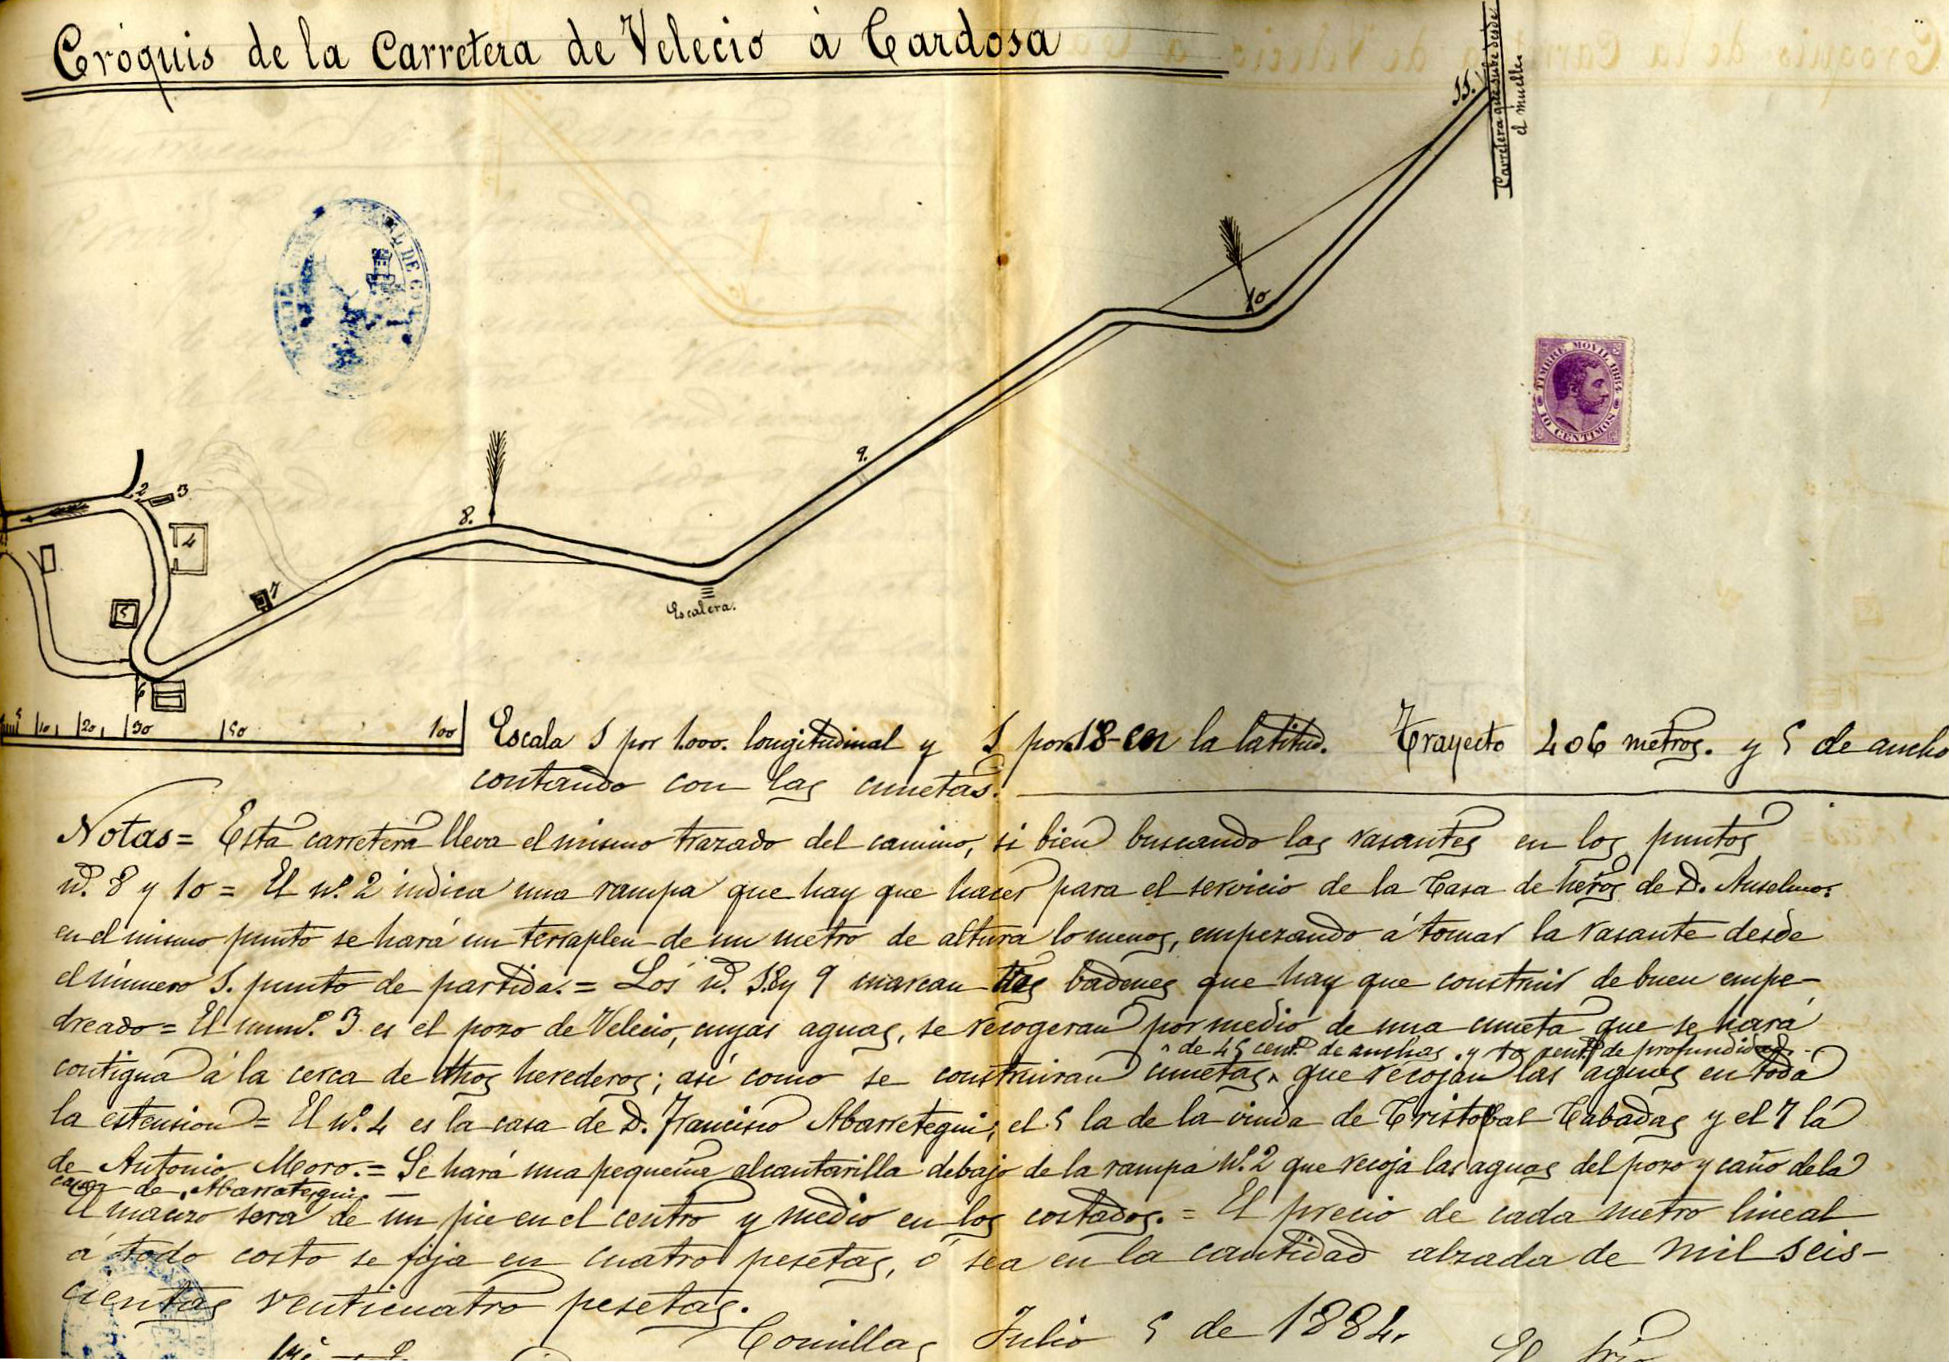 Cróquis de la Carretera de Velecio á Cardosa
Carretera que sube desde
el muelle
11.
10
9.
8.
2 3
4
5
7
6
Escalera.
TIMBRE MOVIL 1884
10 CENTIMOS
5 10 20 30 50 100
Escala 1 por 1.000. longitudinal y 1 por 18 en la latitud. Trayecto 406 metros. y 5 de ancho
contando con las cunetas.
Notas = Esta carretera lleva el mismo trazado del camino, si bien buscando las rasantes en los puntos
nº. 8 y 10 = El nº. 2 indica una rampa que hay que hacer para el servicio de la Casa de heros de D. Anselmo:
en el mismo punto se hará un terraplen de un metro de altura lo menos, empezando á tomar la rasante desde
el número 1. punto de partida. = Los nº. 1. 8 y 9 marcan tres badenes que hay que construir de buen empe-
dreado = El numº. 3 es el pozo de Velecio, cuyas aguas, se recogeran por medio de una cuneta que se hará
de 45 centº. de anchas . y 10 centº. de profundidad
contigua á la cerca de dhos herederos; asi como se construiran cunetas que recojan las aguas en toda
la estension = El nº. 4 es la casa de D. Francisco Abarretegui; el 5 la de la viuda de Cristobal Cabadas y el 7 la
de Antonio Moro. = Se hará una pequeña alcantarilla debajo de la rampa nº. 2 que recoja las aguas del pozo y caño de la
casa de Abarrategui —
El macizo sera de un pie en el centro y medio en los costados. = El precio de cada metro lineal
á todo costo se fija en cuatro pesetas, ó sea en la cantidad alzada de mil seis-
cientas venticuatro pesetas.
Comillas Julio 5 de 1884.
El Srio